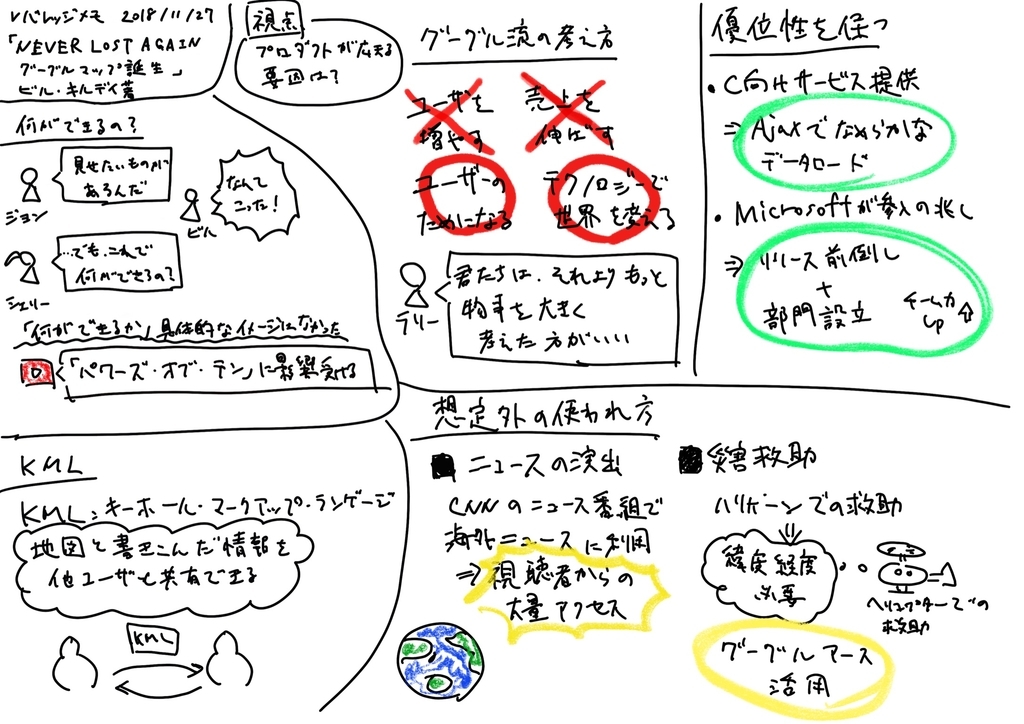 レバレッジメモ 2018/11/27
「NEVER LOST AGAIN
グーグルマップ誕生」
ビル・キルデイ著
視点
プロダクトが広まる
要因は?
何ができるの?
見せたいものが
あるんだ
ジョン
なんて
こった!
ビル
…でも、これで
何ができるの?
シェリー
「何ができるか」具体的なイメージになかった
「パワーズ・オブ・テン」に影響受ける
KML
KML:キーホール・マークアップ・ランゲージ
地図と書きこんだ情報を
他ユーザと共有できる
KML
グーグル流の考え方
ユーザを
増やす
売上を
伸ばす
ユーザーの
ためになる
テクノロジーで
世界を変える
君たちは、それよりもっと
物事を大きく
考えた方がいい
テリー
優位性を保つ
・C向けサービス提供
⇒ Ajaxでなめらかな
データロード
・Microsoftが参入の兆し
⇒ リリース前倒し
+
部門設立
チーム力
up
想定外の使われ方
■ ニュースの演出
CNNのニュース番組で
海外ニュースに利用
⇒ 視聴者からの
大量アクセス
■ 災害救助
ハリケーンでの救助
緯度経度
必要
ヘリコプターでの
救助
グーグルアース
活用